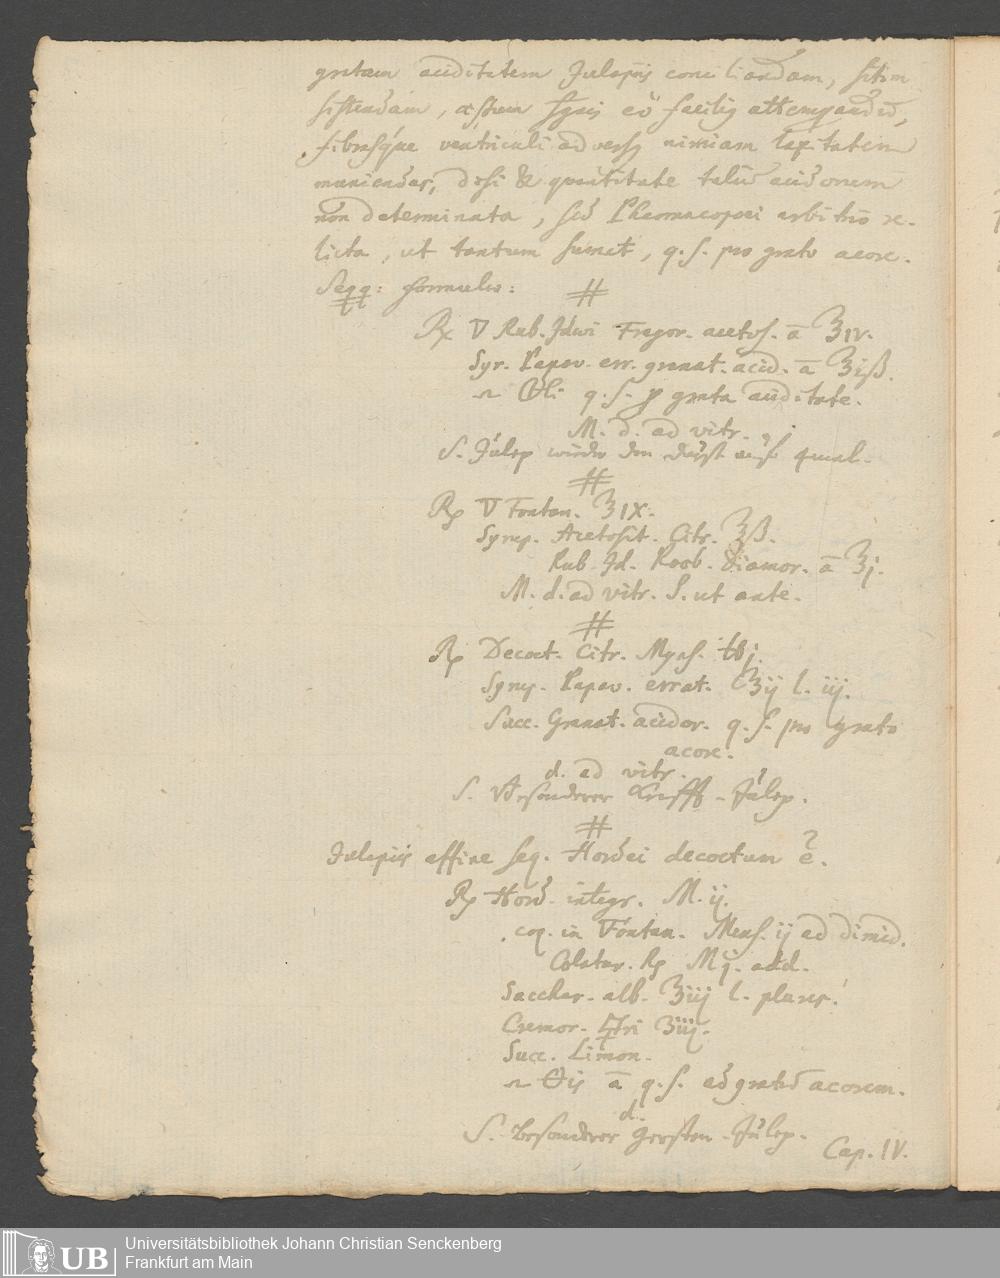 gratam aciditatem Julepiis conciliandam, sitim
sistendam, æstum sgnis eo facilis attemperandu,
fibrasque ventriculi adversus nimiam laxitatem
muniendas, dosi & quantitate talium acidorum
non determinata, sed Pharmacopoei arbitrio re-
licta, ut tantum sumat, q. s. pro grato acore.
Seqq: formulis:
#
℞ ▽ Rub. Idæi Fragor. acetos. ā ℥iv.
Syr. Papav. err. granat. acid. ā ℥iß.
q. s. p grata aciditate.
M. d. ad vitr.
S. Julep wieder den Durst auf 4 mal.
#
℞ ▽ Fontan. ℥IX.
Syrup. Acetosit. Citr. ℥ß.
Rub. Id. Roob. Diamor. ā ℥j.
M. d. ad vitr. S. ut ante.
#
℞ Decoct. Citr. Myns. ℔j.
Syrup. Papav. errat. ℥ij l. iij.
Succ. Granat. acidor. q. s. pro grato
acore.
d. ad vitr.
S. Besonderer Krafft-Julep.
#
Julepiis affine seq. Hordei decoctum ē.
℞ Hord. integr. M. ij.
coq. in ▽ Fontan. Mens. ij ad dimid.
Colatur. ℞ Mj. add.
Sacchar. alb. ℥iij l. plures.
Cremor. ♃ri ʒiij.
Succ. Limon.
ā q. s. ad gratū acorem.
d.
S. Besonderer Gersten-Julep.
Cap. IV.
UB
Universitätsbibliothek Johann Christian Senckenberg
Frankfurt am Main